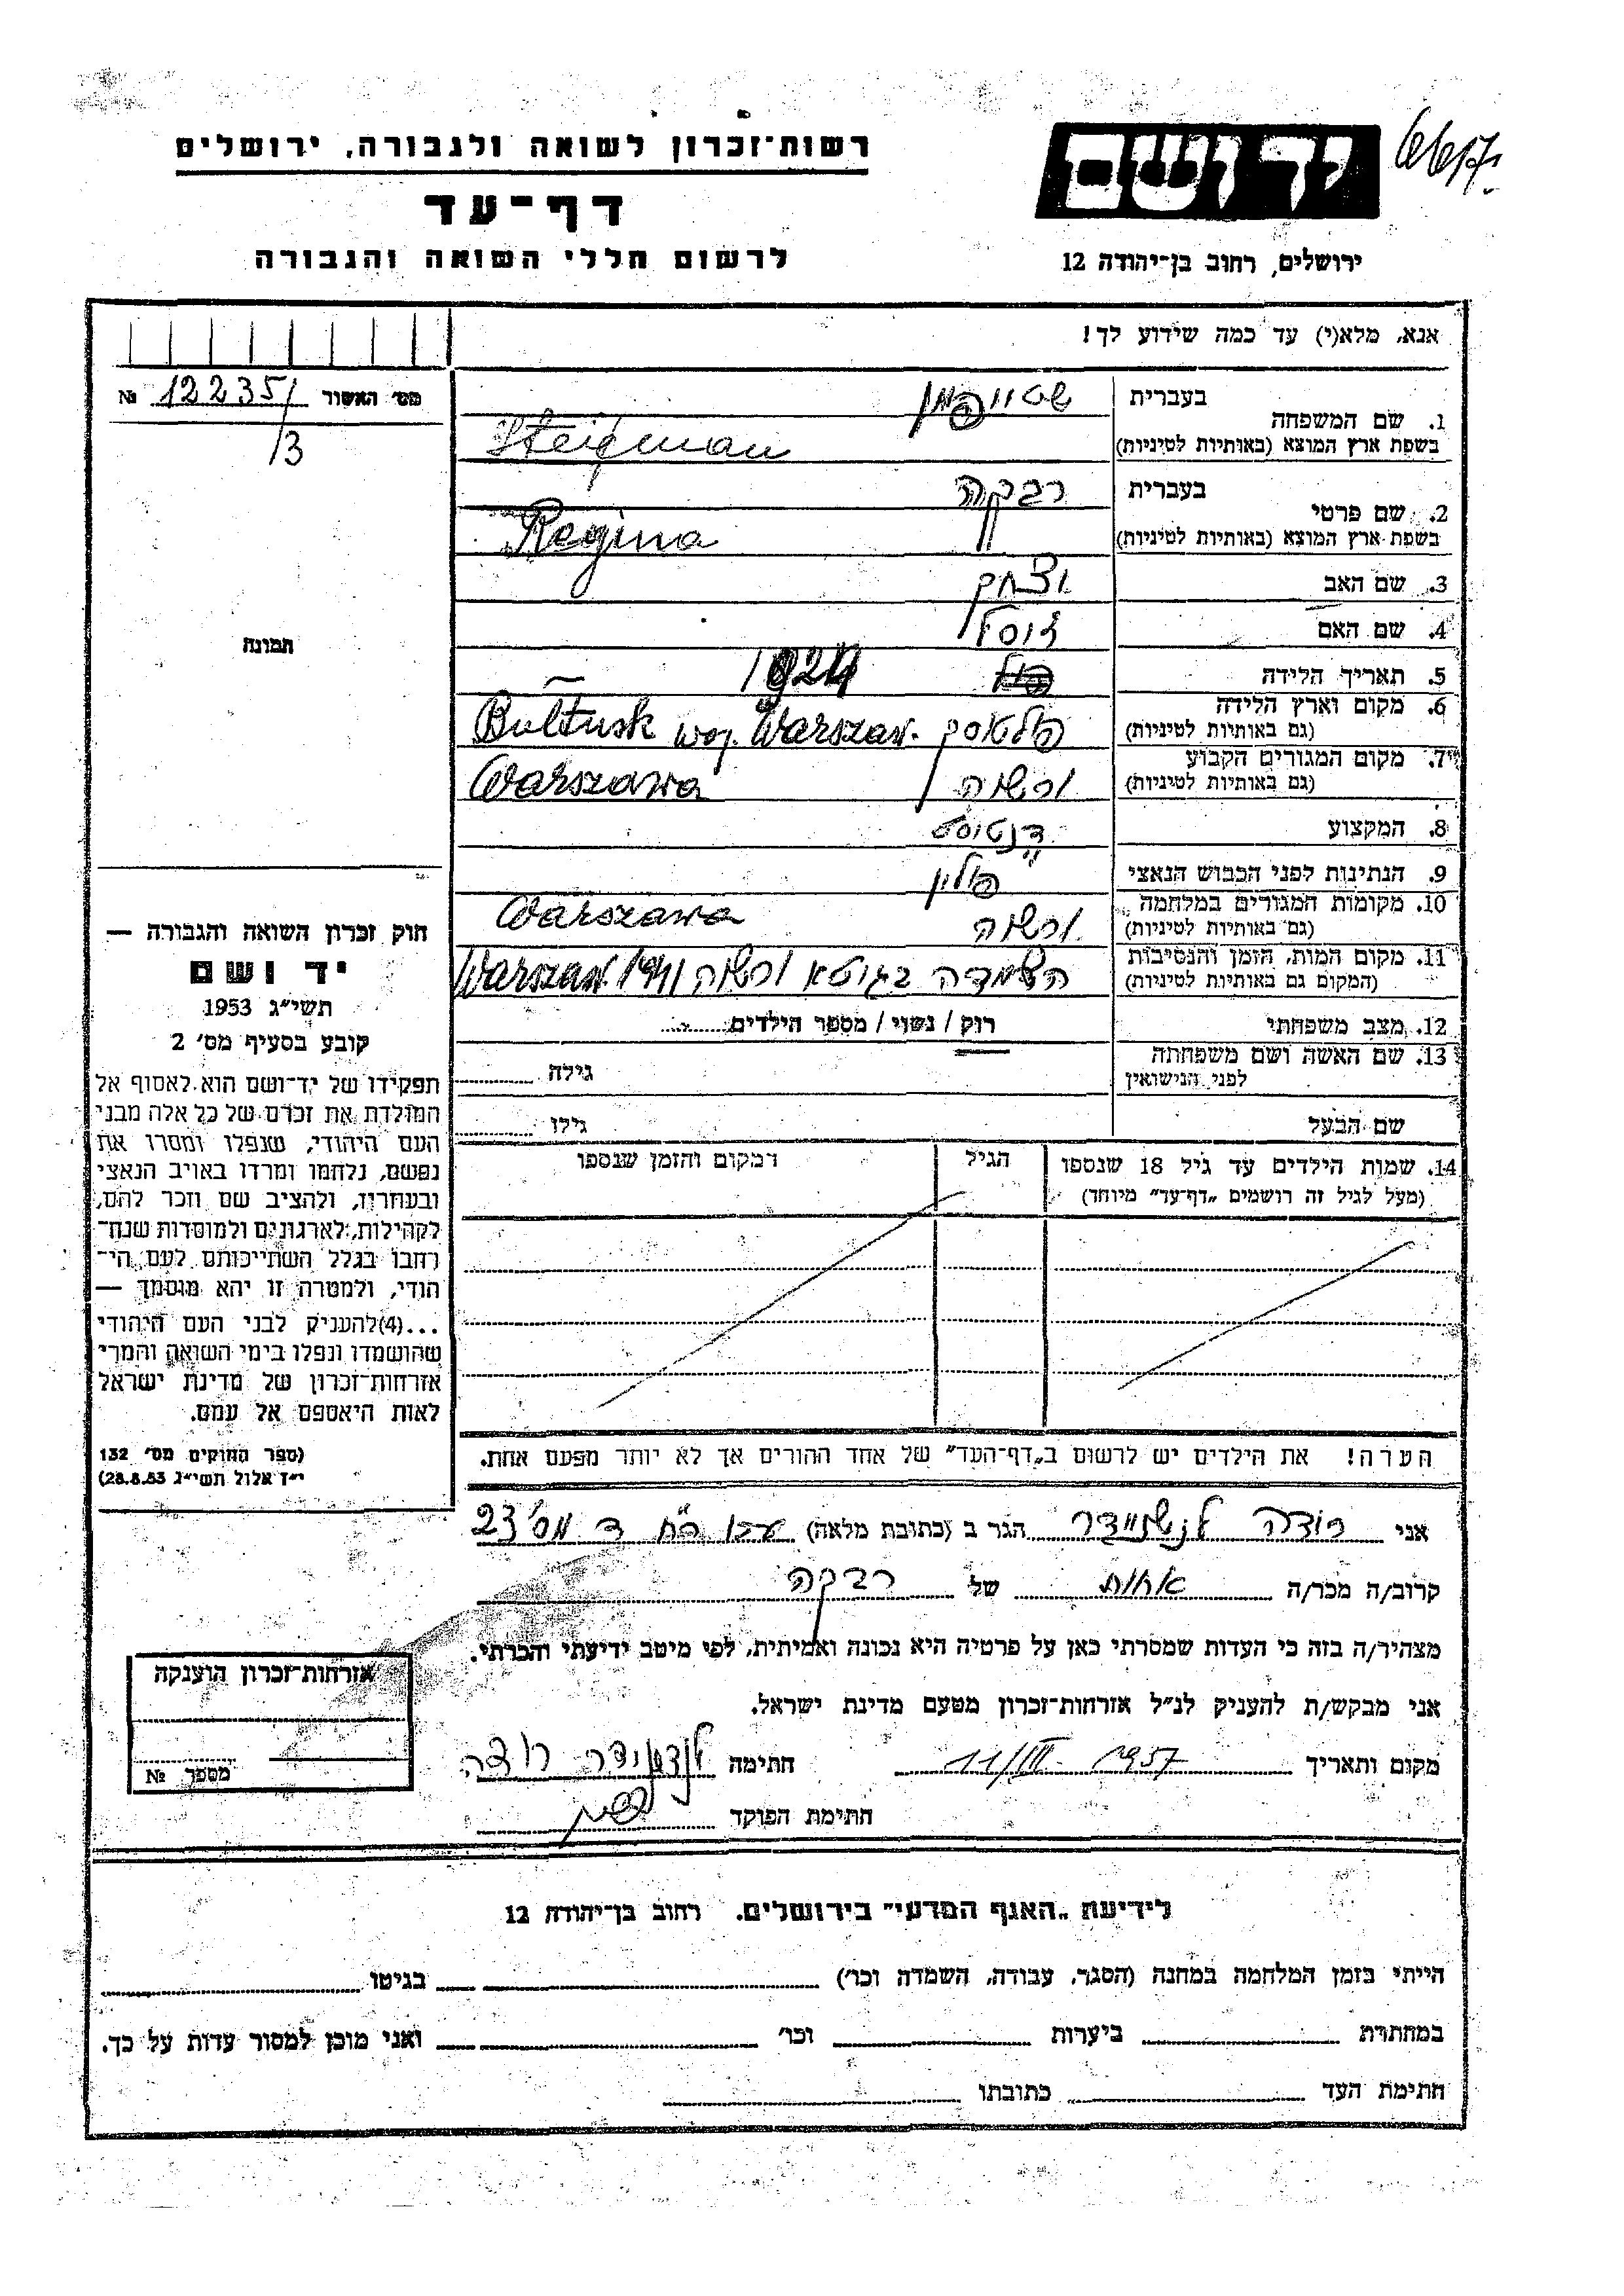 רשות־זכרון לשואה ולגבורה, ירושלים
דף־עד
לרשום חללי השואה והגבורה
ידושם
ירושלים, רחוב בן־יהודה 12
אנא, מלא(י) עד כמה שידוע לך!
מס׳ האשור 12235/ №
/3
תמונה
חוק זכרון השואה והגבורה —
יד ושם
תשי״ג 1953
קובע בסעיף מס׳ 2
תפקידו של יד־ושם הוא לאסוף אל
המולדת את זכרם של כל אלה מבני
העם היהודי, שנפלו ומסרו את
נפשם, נלחמו ומרדו באויב הנאצי
ובעוזריו, ולהציב שם וזכר להם,
לקהילות, לארגונים ולמוסדות שנח־
רבו בגלל השתייכותם לעם הי־
הודי, ולמטרה זו יהא מוסמך —
...(4)להעניק לבני העם היהודי
שהושמדו ונפלו בימי השואה והמרי
אזרחות־זכרון של מדינת ישראל
לאות היאספם אל עמם.
(ספר החוקים מס׳ 132
י״ז אלול תשי״ג 28.8.53)
1. שם המשפחה בעברית
בשפת ארץ המוצא (באותיות לטיניות)
2. שם פרטי בעברית רבקה
בשפת ארץ המוצא (באותיות לטיניות) Regina
3. שם האב יצחק
4. שם האם
5. תאריך הלידה 1924
6. מקום וארץ הלידה פולטוסק Bultusk woj. Warszaw.
(גם באותיות לטיניות)
7. מקום המגורים הקבוע ורשה Warszawa
(גם באותיות לטיניות)
8. המקצוע דנטיסט
9. הנתינות לפני הכבוש הנאצי פולין
10. מקומות המגורים במלחמה ורשה Warszawa
(גם באותיות לטיניות)
11. מקום המות, הזמן והנסיבות השמדה בגיטא ורשה 1941 Warszaw.
(המקום גם באותיות לטיניות)
12. מצב משפחתי רוק / נשוי / מספר הילדים
13. שם האשה ושם משפחתה
לפני הנישואין גילה
שם הבעל גילו
14. שמות הילדים עד גיל 18 שנספו הגיל המקום והזמן שנספו
(מעל לגיל זה רושמים „דף־עד״ מיוחד)
הערה! את הילדים יש לרשום ב„דף־העד״ של אחד ההורים אך לא יותר מפעם אחת.
אני הגר ב (כתובת מלאה) 23
קרוב/ה מכר/ה אחות של רבקה
מצהיר/ה בזה כי העדות שמסרתי כאן על פרטיה היא נכונה ואמיתית, לפי מיטב ידיעתי והכרתי.
אני מבקש/ת להעניק לנ״ל אזרחות־זכרון מטעם מדינת ישראל.
מקום ותאריך 11/III 1957 חתימה
חתימת הפוקד
אזרחות־זכרון הוענקה
מספר №
לידיעת „האגף המדעי״ בירושלים, רחוב בן־יהודה 12
הייתי בזמן המלחמה במחנה (הסגר, עבודה, השמדה וכו׳) בגיטו
במחתרת ביערות וכו׳ ואני מוכן למסור עדות על כך.
חתימת העד כתובתו